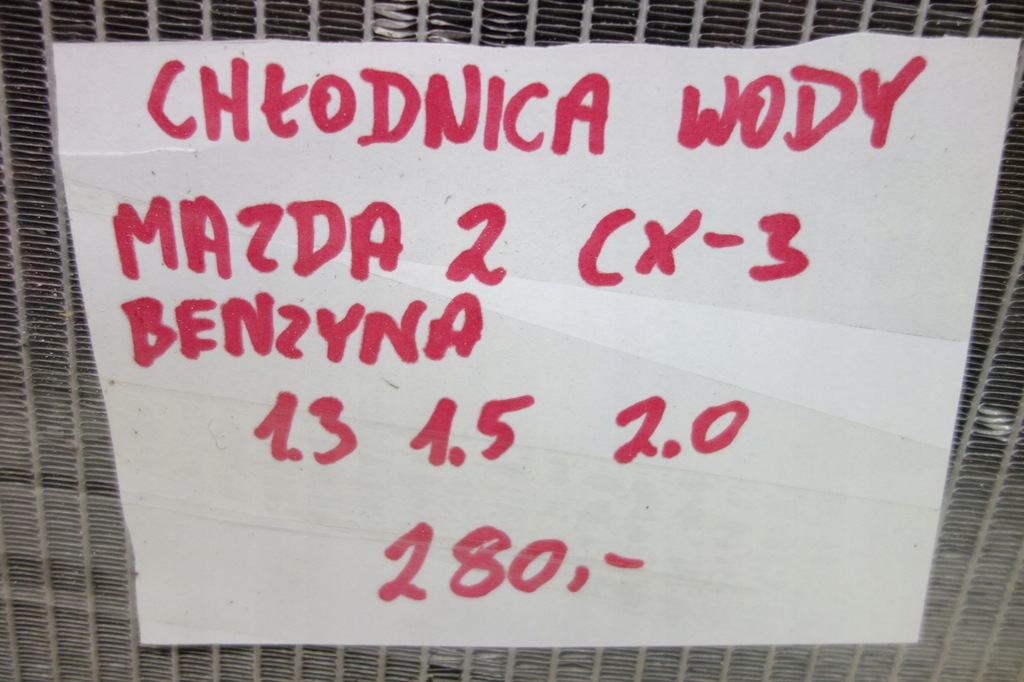 CHŁODNICA WODY
MAZDA 2 CX-3
BENZYNA
1.3 1.5 2.0
280,-